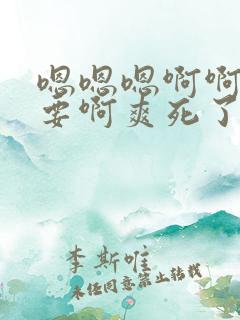 嗯嗯嗯啊啊
要啊爽死了
李斯唯
未经同意禁止转载